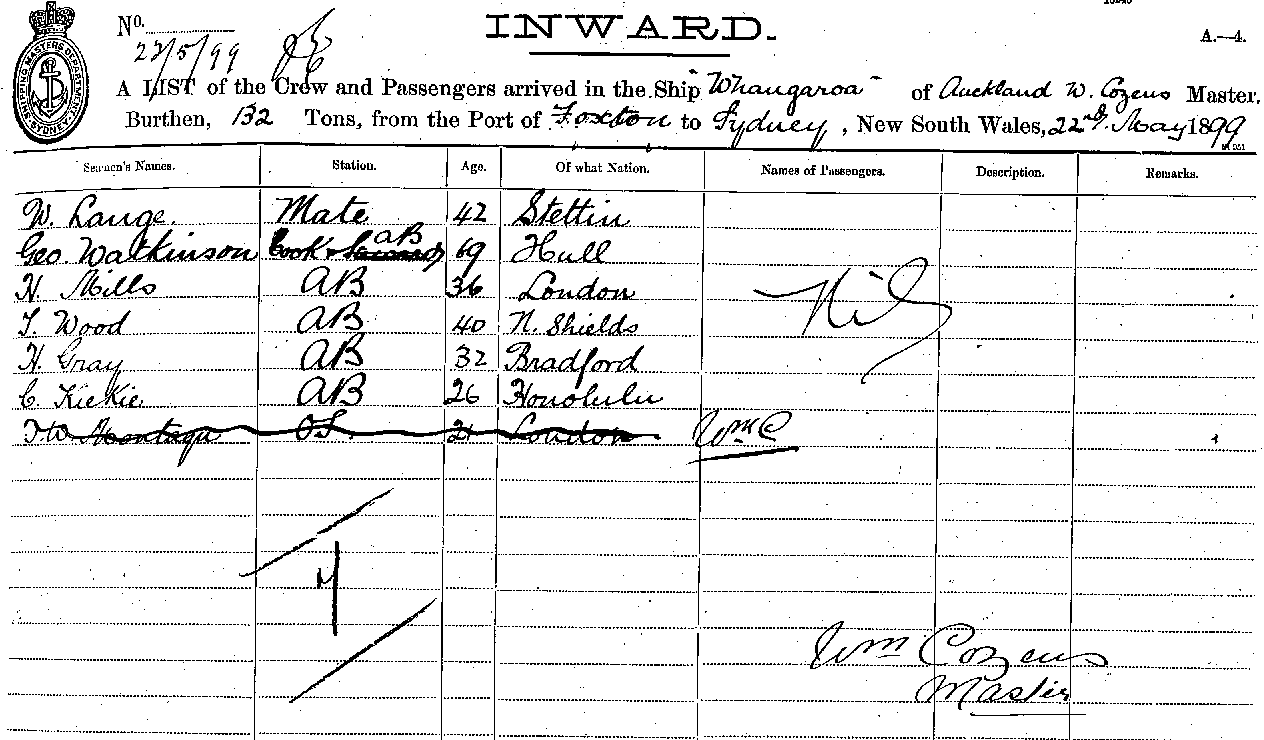 INWARD.
No.
A.—4.
23/5/99
A LIST of the Crew and Passengers arrived in the Ship "Whangaroa" of Auckland W. Cozens Master,
Burthen, 132 Tons, from the Port of Foxton to Sydney, New South Wales, 22nd. May 1899
SHIPPING MASTERS DEPARTMENT SYDNEY
Seamen's Names. Station. Age. Of what Nation. Names of Passengers. Description. Remarks.
W. Lange. Mate 42 Stettin
Geo. Watkinson Cook & Steward AB 69 Hull
H. Mills AB 36 London
T. Wood AB 40 N. Shields
H. Gray AB 32 Bradford
C. KieKie AB 26 Honolulu
Nil
Montagu OS. 21 London WmC
Wm Cozens
Master